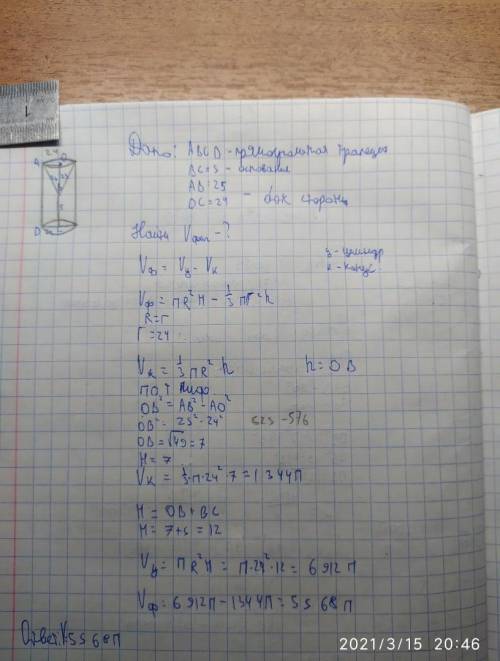 24
Дано: ABCD - прямоугольная трапеция
BC=5 - основание
AB=25
DC=24 - бок стороны
Найти Vфиг-?
ц - цилиндр
к - конус
Vф = Vц - Vк
Vф = пR²H - 1/3 пr²h
R=r
r=24
Vк = 1/3 пR²·h h = OB
ПО Т Пиф
OB² = AB² - AO²
OB² = 25² - 24² 625 - 576
OB = √49 = 7
H = 7
Vк = 1/3·п·24²·7 = 1344п
H = OB + BC
H = 7+5 = 12
Vц = пR²H = п·24²·12 = 6912п
Vф = 6912п - 1344п = 5568п
Ответ: V 5568п
2021/3/15 20:46